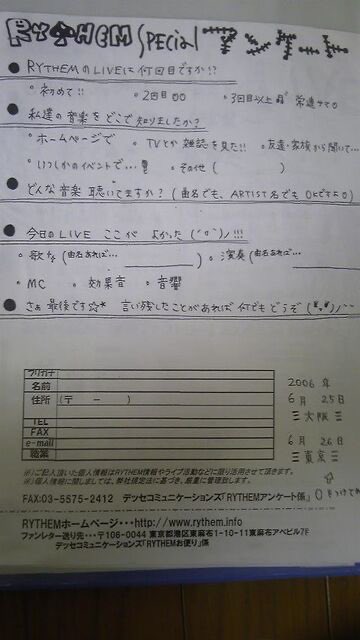 RYTHEM SPECIAL アンケート
● RYTHEMのLIVEは何回目ですか!?
。初めて!! 。2回目 。3回目以上
● 私達の音楽をどこで知りましたか?
。ホームページで 。TVとか雑誌を見た!! 。友達・家族から聞いて…
。いつしかのイベントで… 。その他 ( )
● どんな音楽聴いてますか? (曲名でも、ARTIST名でもOKですよ○)
● 今日のLIVE ここが よかった (^o^)ノ !!!
。歌な (曲名あれば… ) 。演奏 (曲名あれば…
。MC 。効果音 。音響
● さぁ最後です☆* 言い残したことがあれば何でもどうぞ
フリガナ
名前
住所 (〒 - )
TEL
FAX
e-mail
職業
2006年
6月 25日
大阪
6月 26日
東京
○をつけてね
※)ご記入頂いた個人情報はRYTHEM情報やライブ活動などに限り活用させて頂きます。
※)個人情報に関しましては、弊社規定法に基づき、厳重に管理致します。
FAX:03-5575-2412 デッセコミュニケーションズ「RYTHEMアンケート係」
RYTHEMホームページ・・・http://www.rythem.info
ファンレター送り先・・・〒106-0044 東京都港区東麻布1-10-11東麻布アベビル7F
デッセコミュニケーションズ「RYTHEMお便り」係